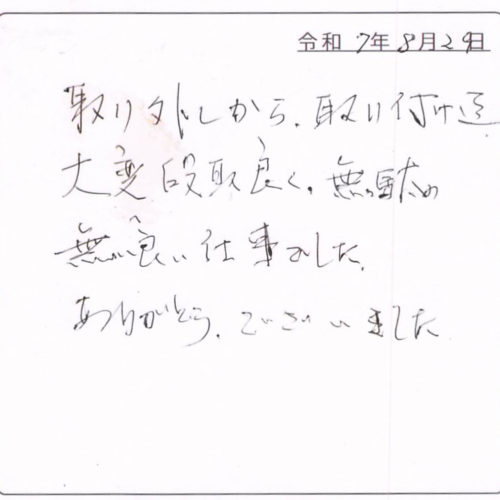 令和 7年 8月29日
取り外しから、取り付け迄
大変段取良く、無駄の
無い良い仕事でした。
ありがとう、ございました